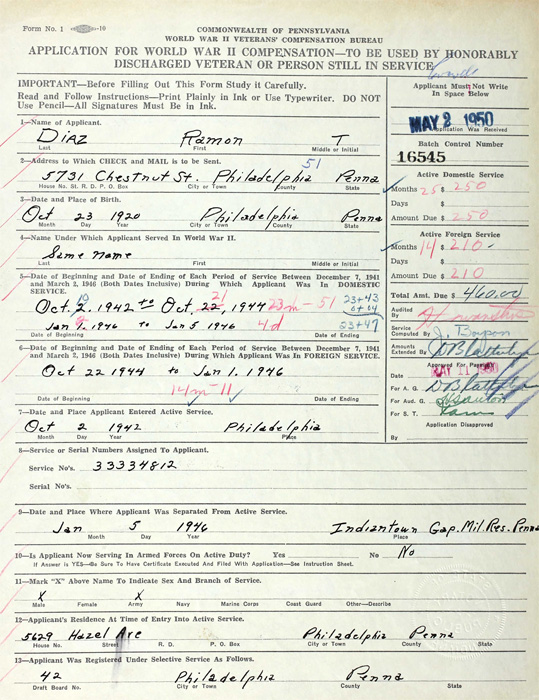 Form No. 1 -10
COMMONWEALTH OF PENNSYLVANIA
WORLD WAR II VETERANS' COMPENSATION BUREAU
APPLICATION FOR WORLD WAR II COMPENSATION—TO BE USED BY HONORABLY
DISCHARGED VETERAN OR PERSON STILL IN SERVICE
IMPORTANT—Before Filling Out This Form Study it Carefully.
Read and Follow Instructions—Print Plainly in Ink or Use Typewriter. DO NOT
Use Pencil—All Signatures Must be in Ink.
Applicant Must Not Write
In Space Below
MAY 2 1950
Application Was Received
Batch Control Number
16545
1—Name of Applicant.
Diaz Ramon T
Last First Middle or Initial
2—Address to Which CHECK and MAIL is to be Sent.
51
5731 Chestnut St. Philadelphia Penna
House No. St. R. D. P. O. Box City or Town County State
3—Date and Place of Birth.
Oct 23 1920 Philadelphia Penna
Month Day Year City or Town County State
4—Name Under Which Applicant Served In World War II.
Same name
Last First Middle or Initial
5—Date of Beginning and Date of Ending of Each Period of Service Between December 7, 1941
and March 2, 1946 (Both Dates Inclusive) During Which Applicant Was In DOMESTIC
SERVICE.
10 21
Oct. 2, 1942 to Oct. 22, 1944 23m-51 23+43
Jan 1, 1946 to Jan 5 1946 4d 23+47
Date of Beginning Date of Ending
6—Date of Beginning and Date of Ending of Each Period of Service Between December 7, 1941
and March 2, 1946 (Both Dates Inclusive) During Which Applicant Was In FOREIGN SERVICE.
Oct 22 1944 to Jan 1. 1946
Date of Beginning 14m-11 Date of Ending
7—Date and Place Applicant Entered Active Service.
Oct 2 1942 Philadelphia
Month Day Year Place
Active Domestic Service
Months 25 $ 250
Days $
Amount Due $ 250
Active Foreign Service
Months 14 $ 210-
Days $
Amount Due $ 210
Total Amt. Due $ 460.00
Audited By
Service Computed By
Amounts Extended By
Approved For Payment
Date MAY 11 1950
For A. G.
For Aud. G.
For S. T.
Application Disapproved
By
8—Service or Serial Numbers Assigned To Applicant.
Service No's. 33334812
Serial No's.
9—Date and Place Where Applicant Was Separated From Active Service.
Jan 5 1946 Indiantown Gap. Mil. Res. Penna
Month Day Year Place
10—Is Applicant Now Serving In Armed Forces On Active Duty? Yes No No
If Answer is YES—Be Sure To Have Certificate Executed And Filed With Application—See Instruction Sheet.
11—Mark "X" Above Name To Indicate Sex and Branch of Service.
X X
Male Female Army Navy Marine Corps Coast Guard Other—Describe
12—Applicant's Residence At Time of Entry Into Active Service.
5629 Hazel Ave Philadelphia Penna
House No. Street R. D. P. O. Box City or Town County State
13—Applicant Was Registered Under Selective Service As Follows.
42 Philadelphia Penna
Draft Board No. City or Town County State